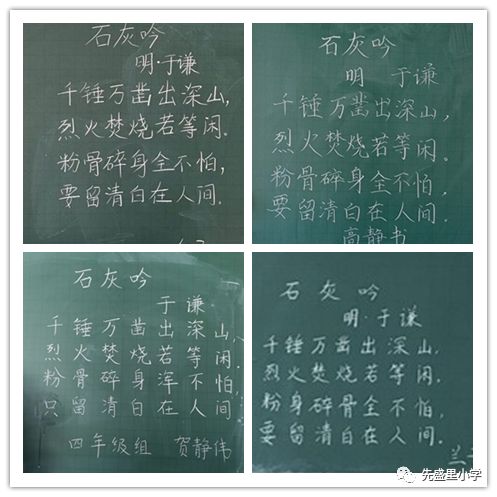 石灰吟
明·于谦
千锤万凿出深山,
烈火焚烧若等闲.
粉骨碎身全不怕,
要留清白在人间.
石灰吟
明 于谦
千锤万凿出深山,
烈火焚烧若等闲.
粉骨碎身全不怕,
要留清白在人间.
高静书
石灰吟
于谦
千锤万凿出深山,
烈火焚烧若等闲.
粉骨碎身浑不怕,
只留清白在人间
四年级组 贺静伟
石灰吟
明·于谦
千锤万凿出深山,
烈火焚烧若等闲.
粉身碎骨全不怕,
要留清白在人间.
先盛里小学